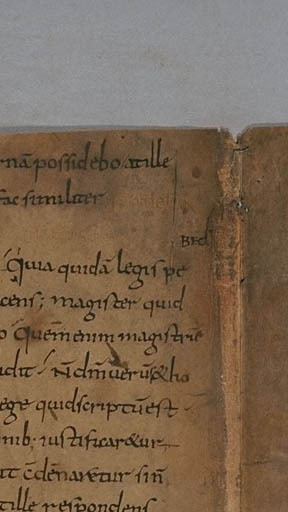 rnā possidebo. at ille
fac similiter
BED
Quia quidā legis pe
cens; magister quid
o Quem enim magistrū
udit. Nā dm̄ uerū & ho
lege quid scriptū est
inib. iustificar&ur,
ut cdēnaretur sin
tille respondens